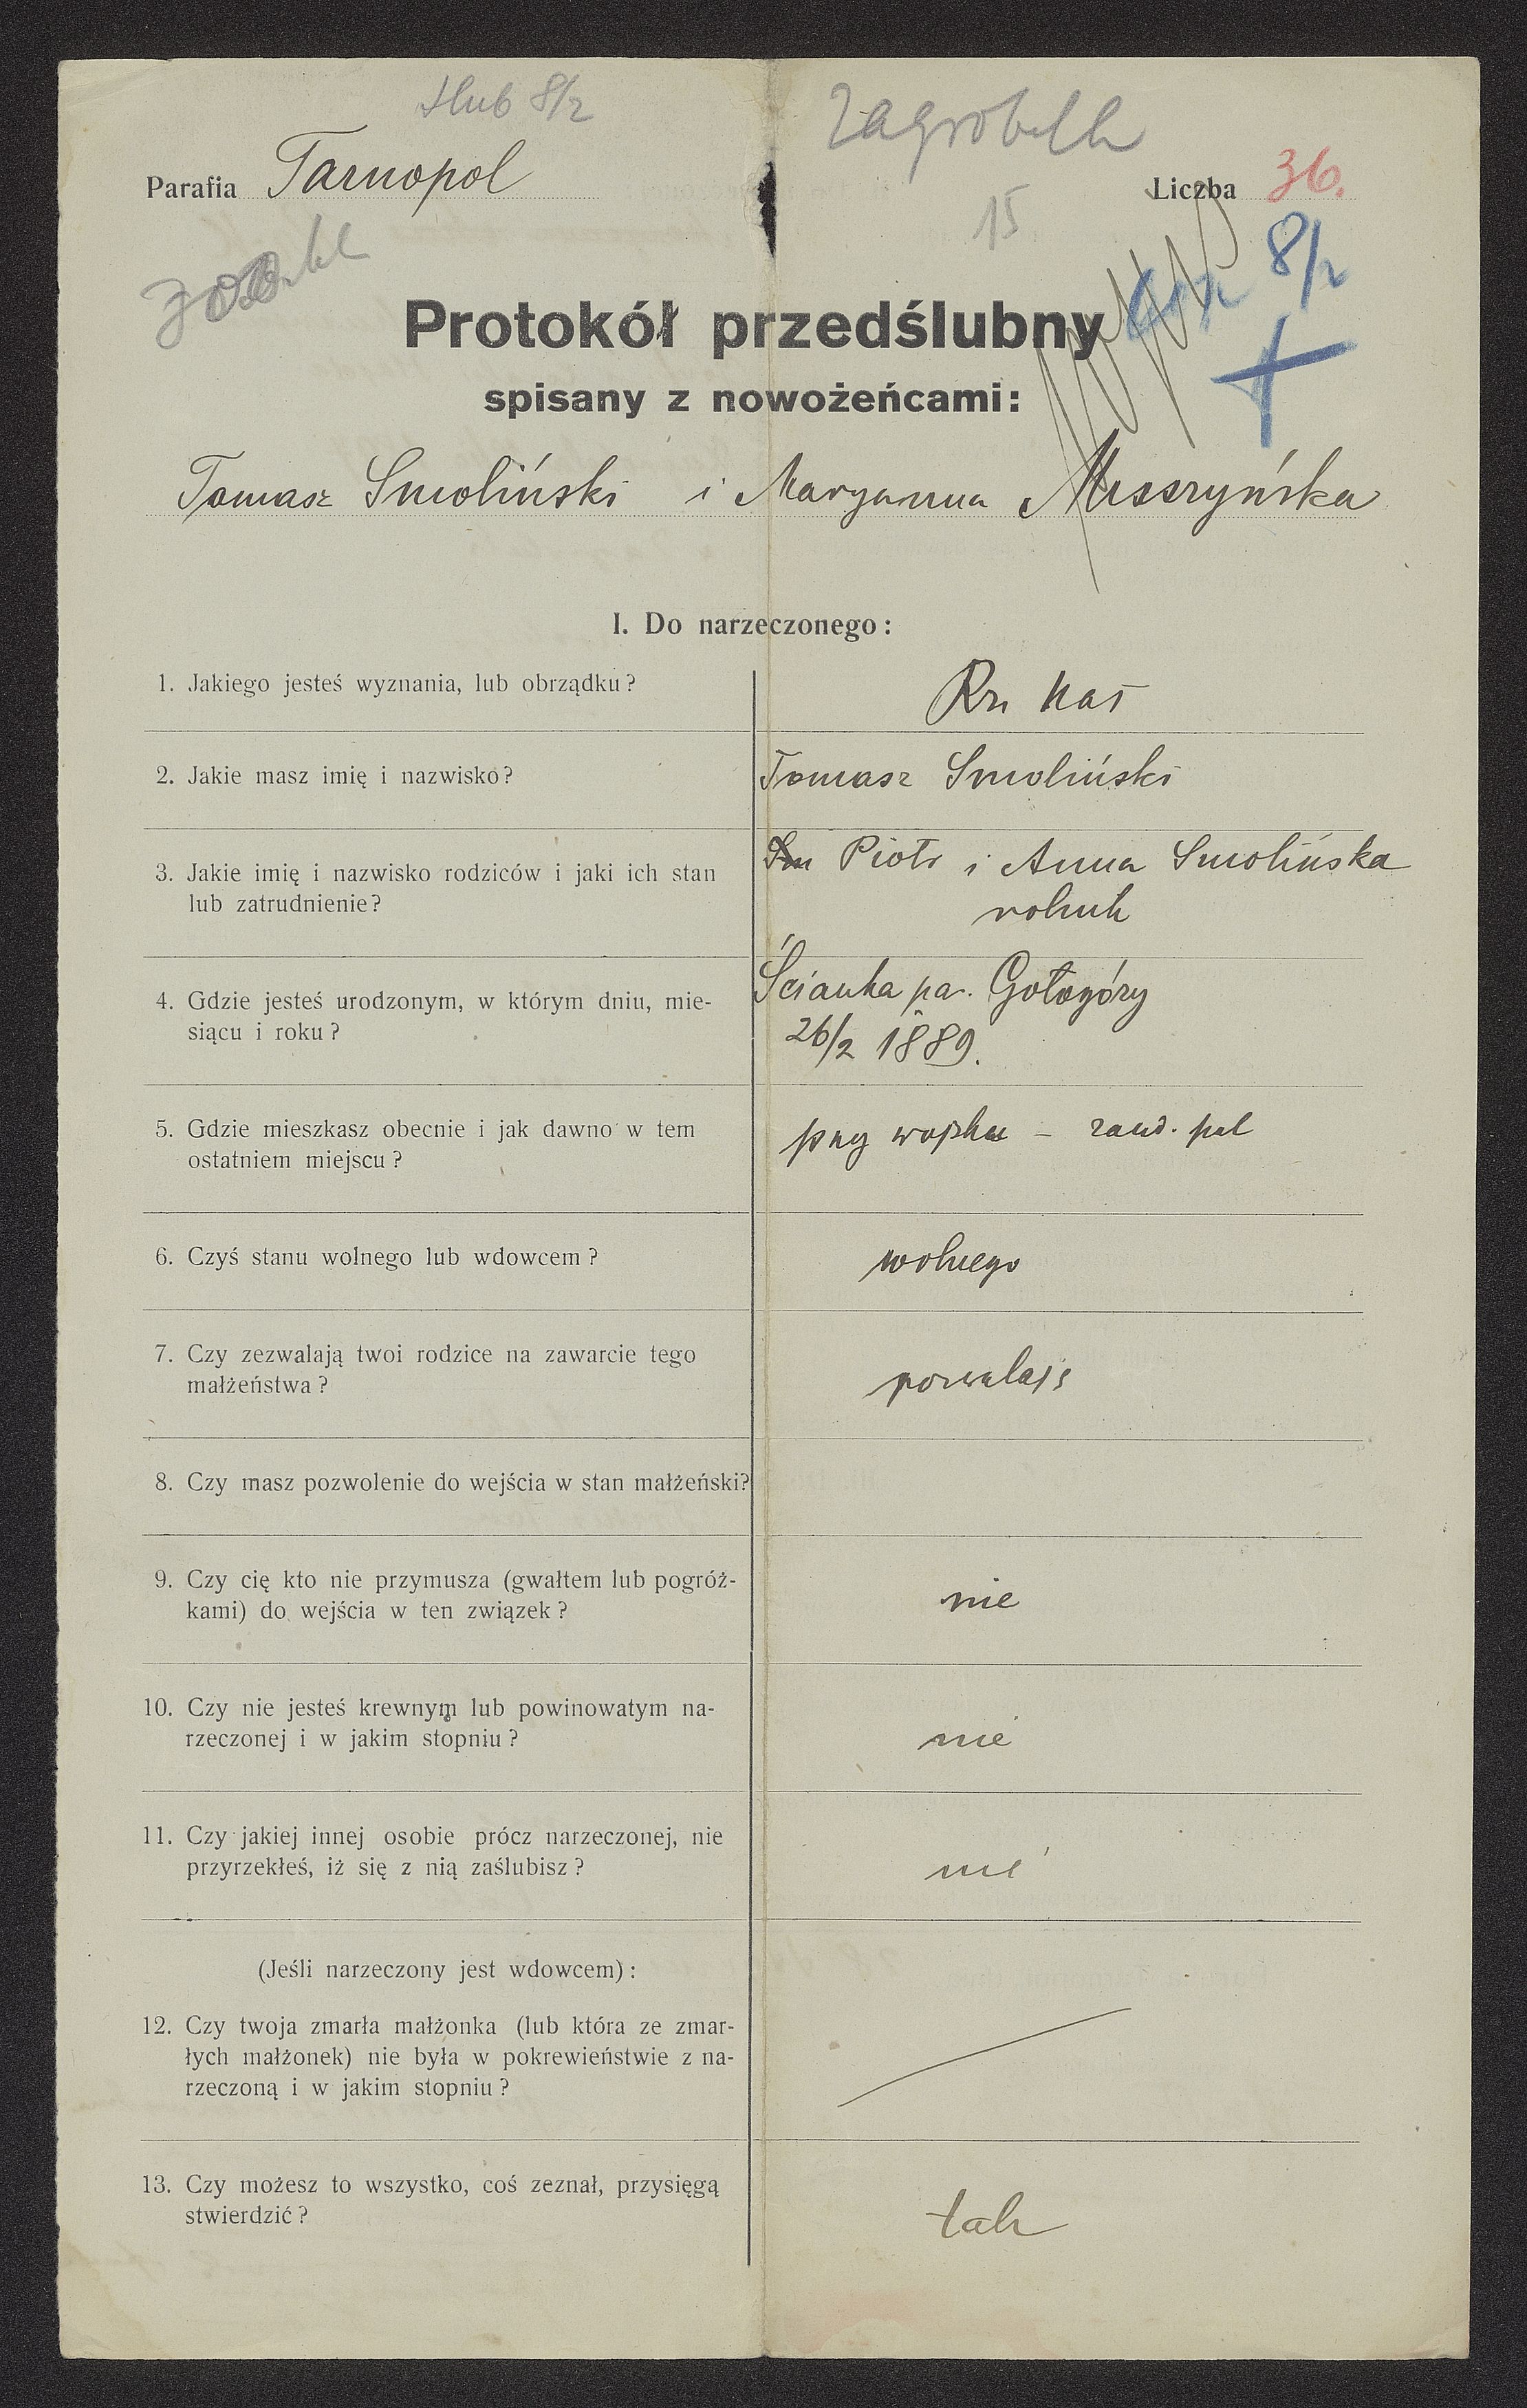 Ślub 8/2
Zagrobelk
Parafia Tarnopol
Liczba 36.
15
8/2
Protokół przedślubny
spisany z nowożeńcami:
Tomasz Smoliński i Maryanna Muszyńska
I. Do narzeczonego:
1. Jakiego jesteś wyznania, lub obrządku?
Rz. kat
2. Jakie masz imię i nazwisko?
Tomasz Smoliński
3. Jakie imię i nazwisko rodziców i jaki ich stan
lub zatrudnienie?
Piotr i Anna Smolińska
rolnik
4. Gdzie jesteś urodzonym, w którym dniu, mie-
siącu i roku?
Ścianka pa. Gołogóry
26/2 1889.
5. Gdzie mieszkasz obecnie i jak dawno w tem
ostatniem miejscu?
przy wojsku – żand. pol
6. Czyś stanu wolnego lub wdowcem?
wolnego
7. Czy zezwalają twoi rodzice na zawarcie tego
małżeństwa?
pozwalają
8. Czy masz pozwolenie do wejścia w stan małżeński?
9. Czy cię kto nie przymusza (gwałtem lub pogróż-
kami) do wejścia w ten związek?
nie
10. Czy nie jesteś krewnym lub powinowatym na-
rzeczonej i w jakim stopniu?
nie
11. Czy jakiej innej osobie prócz narzeczonej, nie
przyrzekłeś, iż się z nią zaślubisz?
nie
(Jeśli narzeczony jest wdowcem):
12. Czy twoja zmarła małżonka (lub która ze zmar-
łych małżonek) nie była w pokrewieństwie z na-
rzeczoną i w jakim stopniu?
13. Czy możesz to wszystko, coś zeznał, przysięgą
stwierdzić?
tak